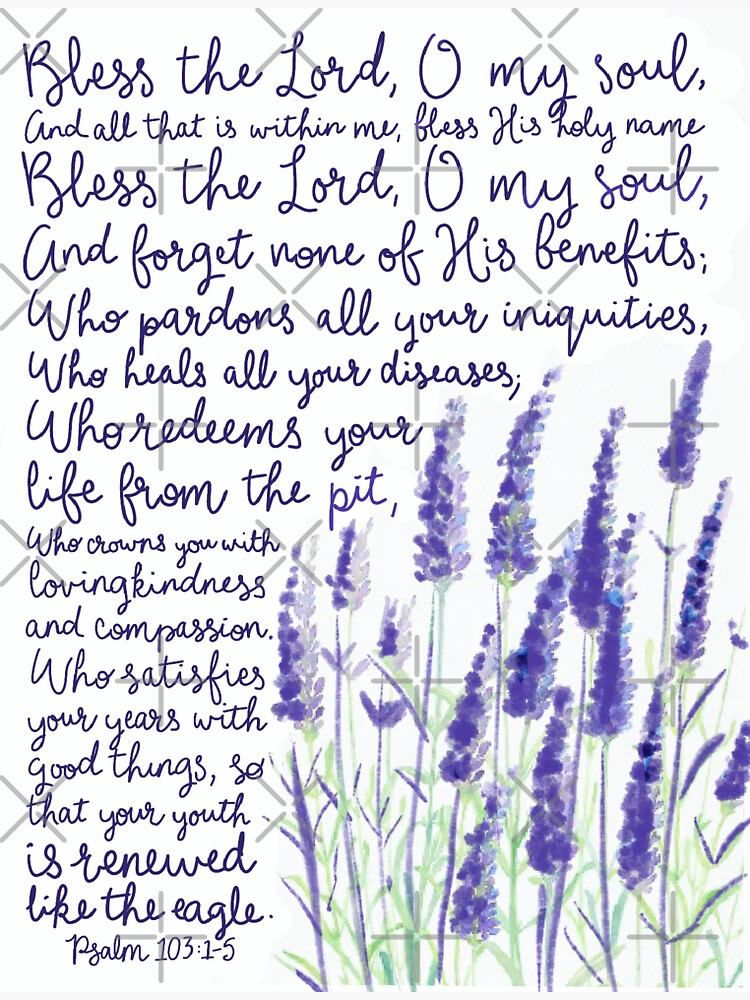 Bless the Lord, O my soul,
And all that is within me, bless His holy name
Bless the Lord, O my soul,
And forget none of His benefits;
Who pardons all your iniquities,
Who heals all your diseases;
Who redeems your
life from the pit,
Who crowns you with
lovingkindness
and compassion.
Who satisfies
your years with
good things, so
that your youth
is renewed
like the eagle.
Psalm 103:1-5